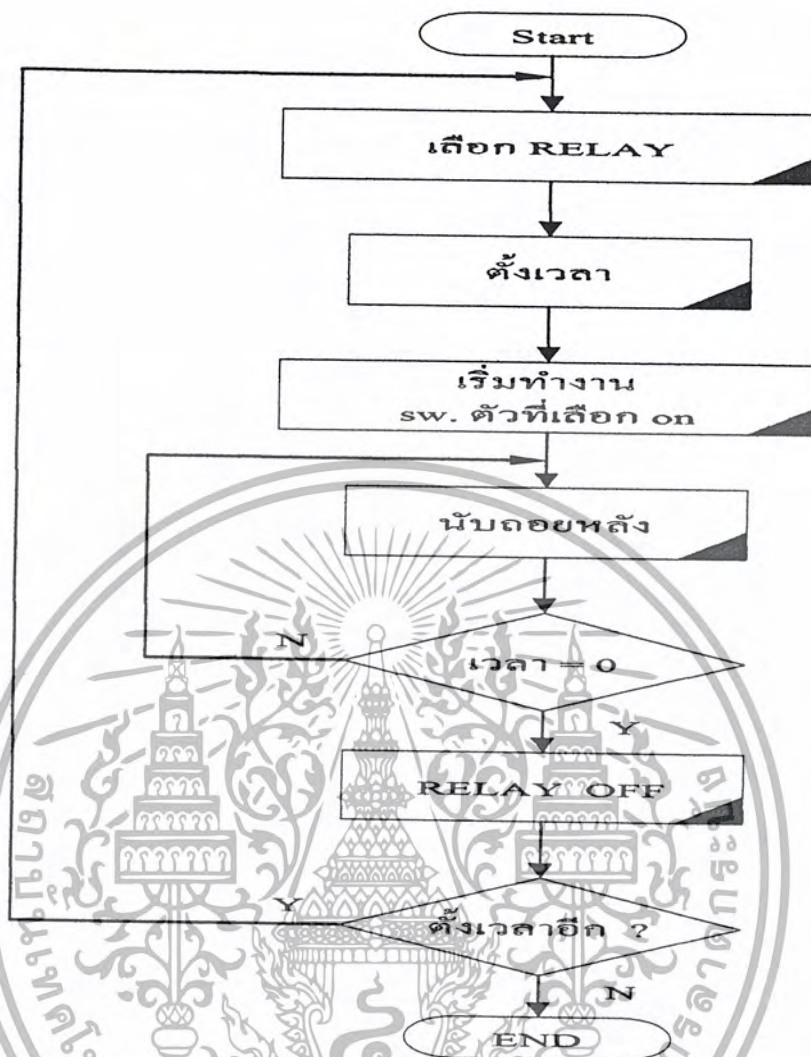 Start
เลือก RELAY
ตั้งเวลา
เริ่มทำงาน
sw. ตัวที่เลือก on
นับถอยหลัง
N
เวลา = 0
Y
RELAY OFF
Y
ตั้งเวลาอีก ?
N
END